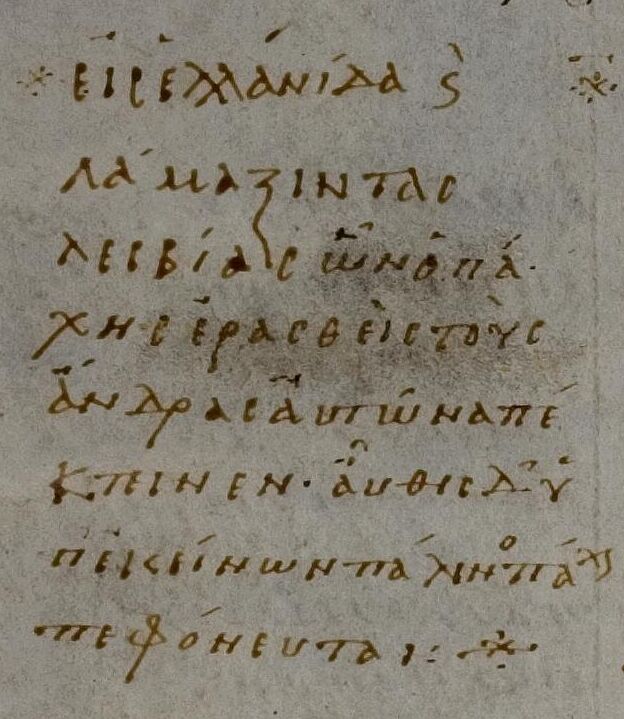 ※ εἰς ἑλλανίδα ϗ ※
λάμαξιν τὰς
λεσβίας ὧν ὁ πά
χης ἐρασθεὶς τοὺς
ἄνδρας αὐτῶν ἀπέ
κτεινεν· αὖθις δ' ὑ
π' ἐκείνων πάλιν ὁ πάχης
πεφόνευται: ※